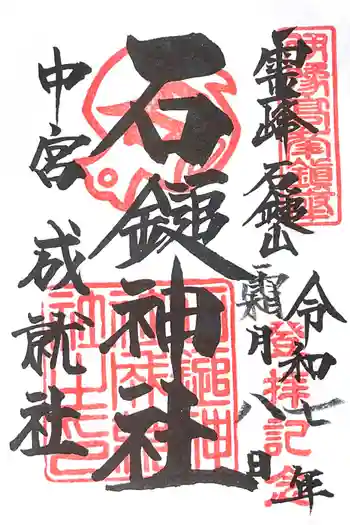 霊峰石鎚山
令和七年
霜月八日
登拝記念
石鎚神社
中宮成就社